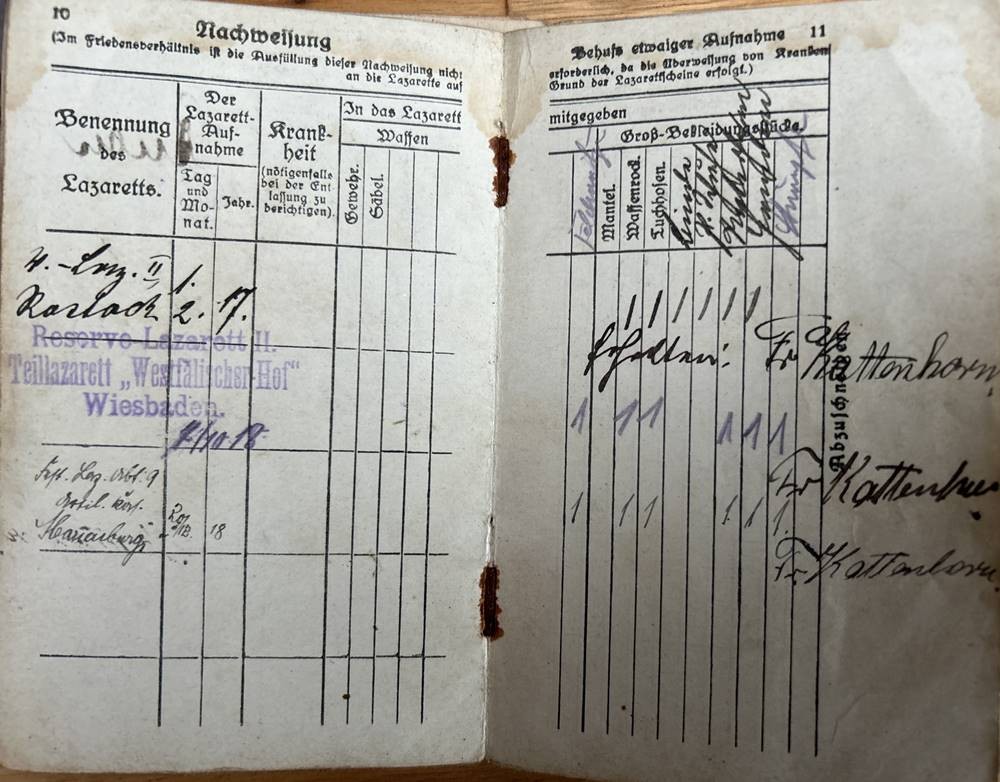 10
Nachweisung
(Im Friedensverhältnis ist die Ausfüllung dieser Nachweisung nicht
an die Lazarette auf
Benennung
des
Lazaretts.
Der
Lazarett-
Auf-
nahme
Tag
und
Mo-
nat.
Jahr.
Krank-
heit
(nötigenfalls
bei der Ent-
lassung zu
berichtigen).
In das Lazarett
Waffen
Gewehr.
Säbel.
Laz. II
Rostock 1. 2. 17.
Reserve-Lazarett II.
Teillazarett „Westfälischer-Hof“
Wiesbaden.
7/10 18
Fest. Laz. Abt. 9
20/12. 18
11
Behufs etwaiger Aufnahme
erforderlich, da die Überweisung von Kranken
Grund der Lazarettscheine erfolgt.)
mitgegeben
Groß-Bekleidungsstücke.
Feldmütze
Mantel.
Waffenrock.
Tuchhosen.
Binde
Strümpfe
1 1 1 1 1 1
Erhalten: Fr Kattenhorn
1 1 1 1 1 1
Fr Kattenhorn
1 1 1 1 1 1
Fr. Kattenhorn.
Abzuschneiden